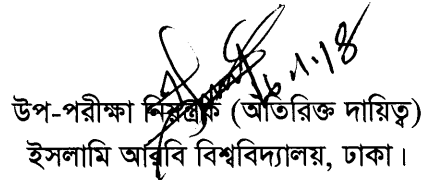 ১৬.১.১৪
উপ-পরীক্ষা নিয়ন্ত্রক (অতিরিক্ত দায়িত্ব)
ইসলামি আরবি বিশ্ববিদ্যালয়, ঢাকা।